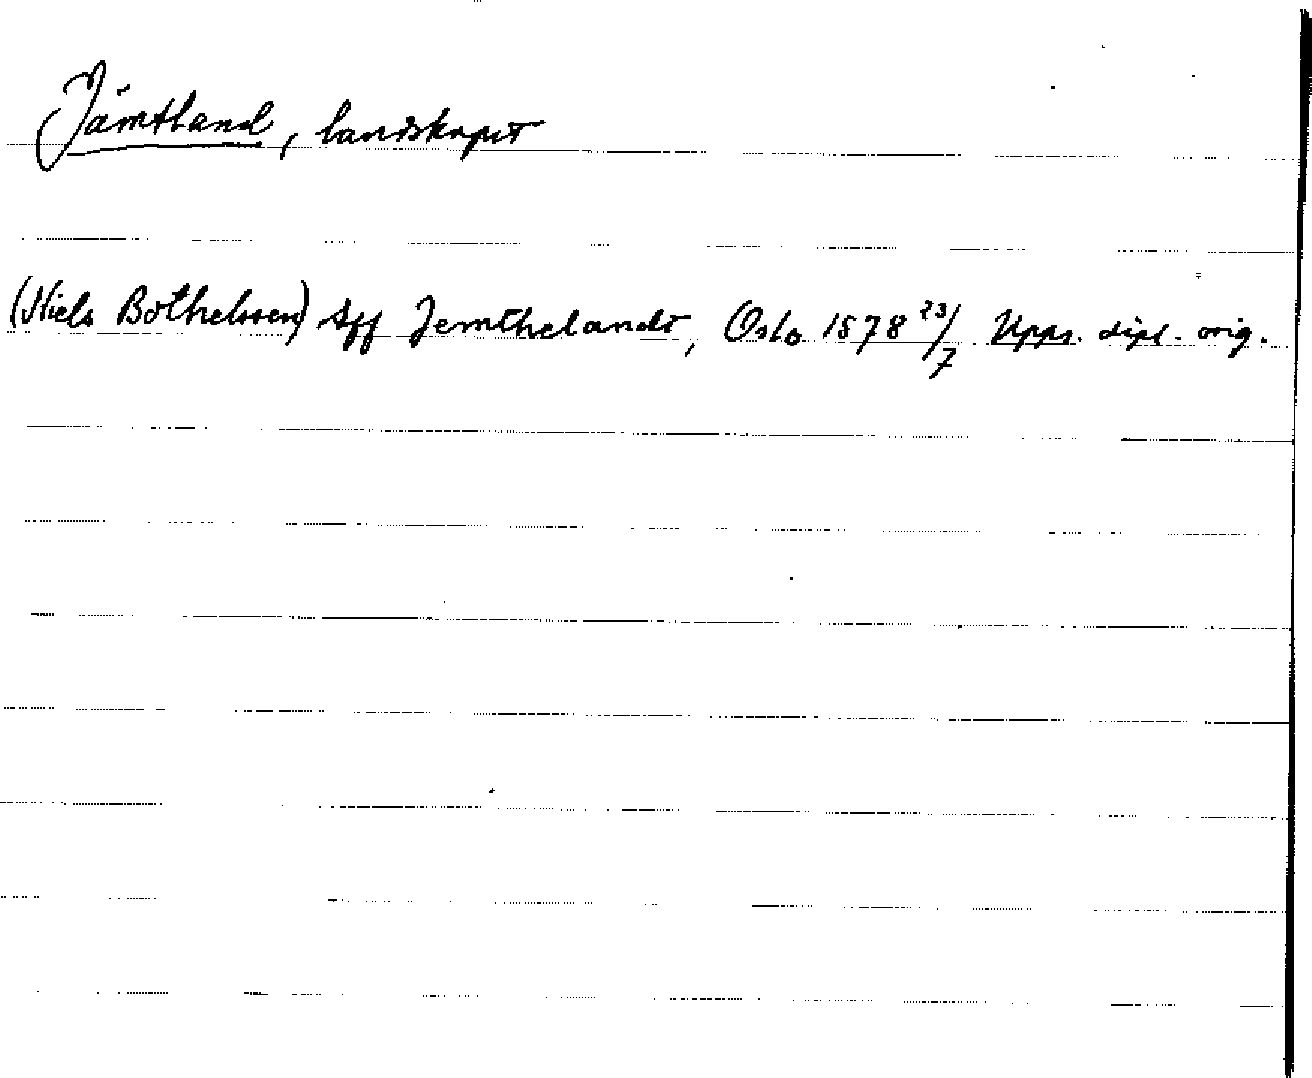 Jämtland, landskapet
(Niels Bothelssen) Aff Jemthelandt, Oslo 1578 23/7 Upps. dipl. orig.